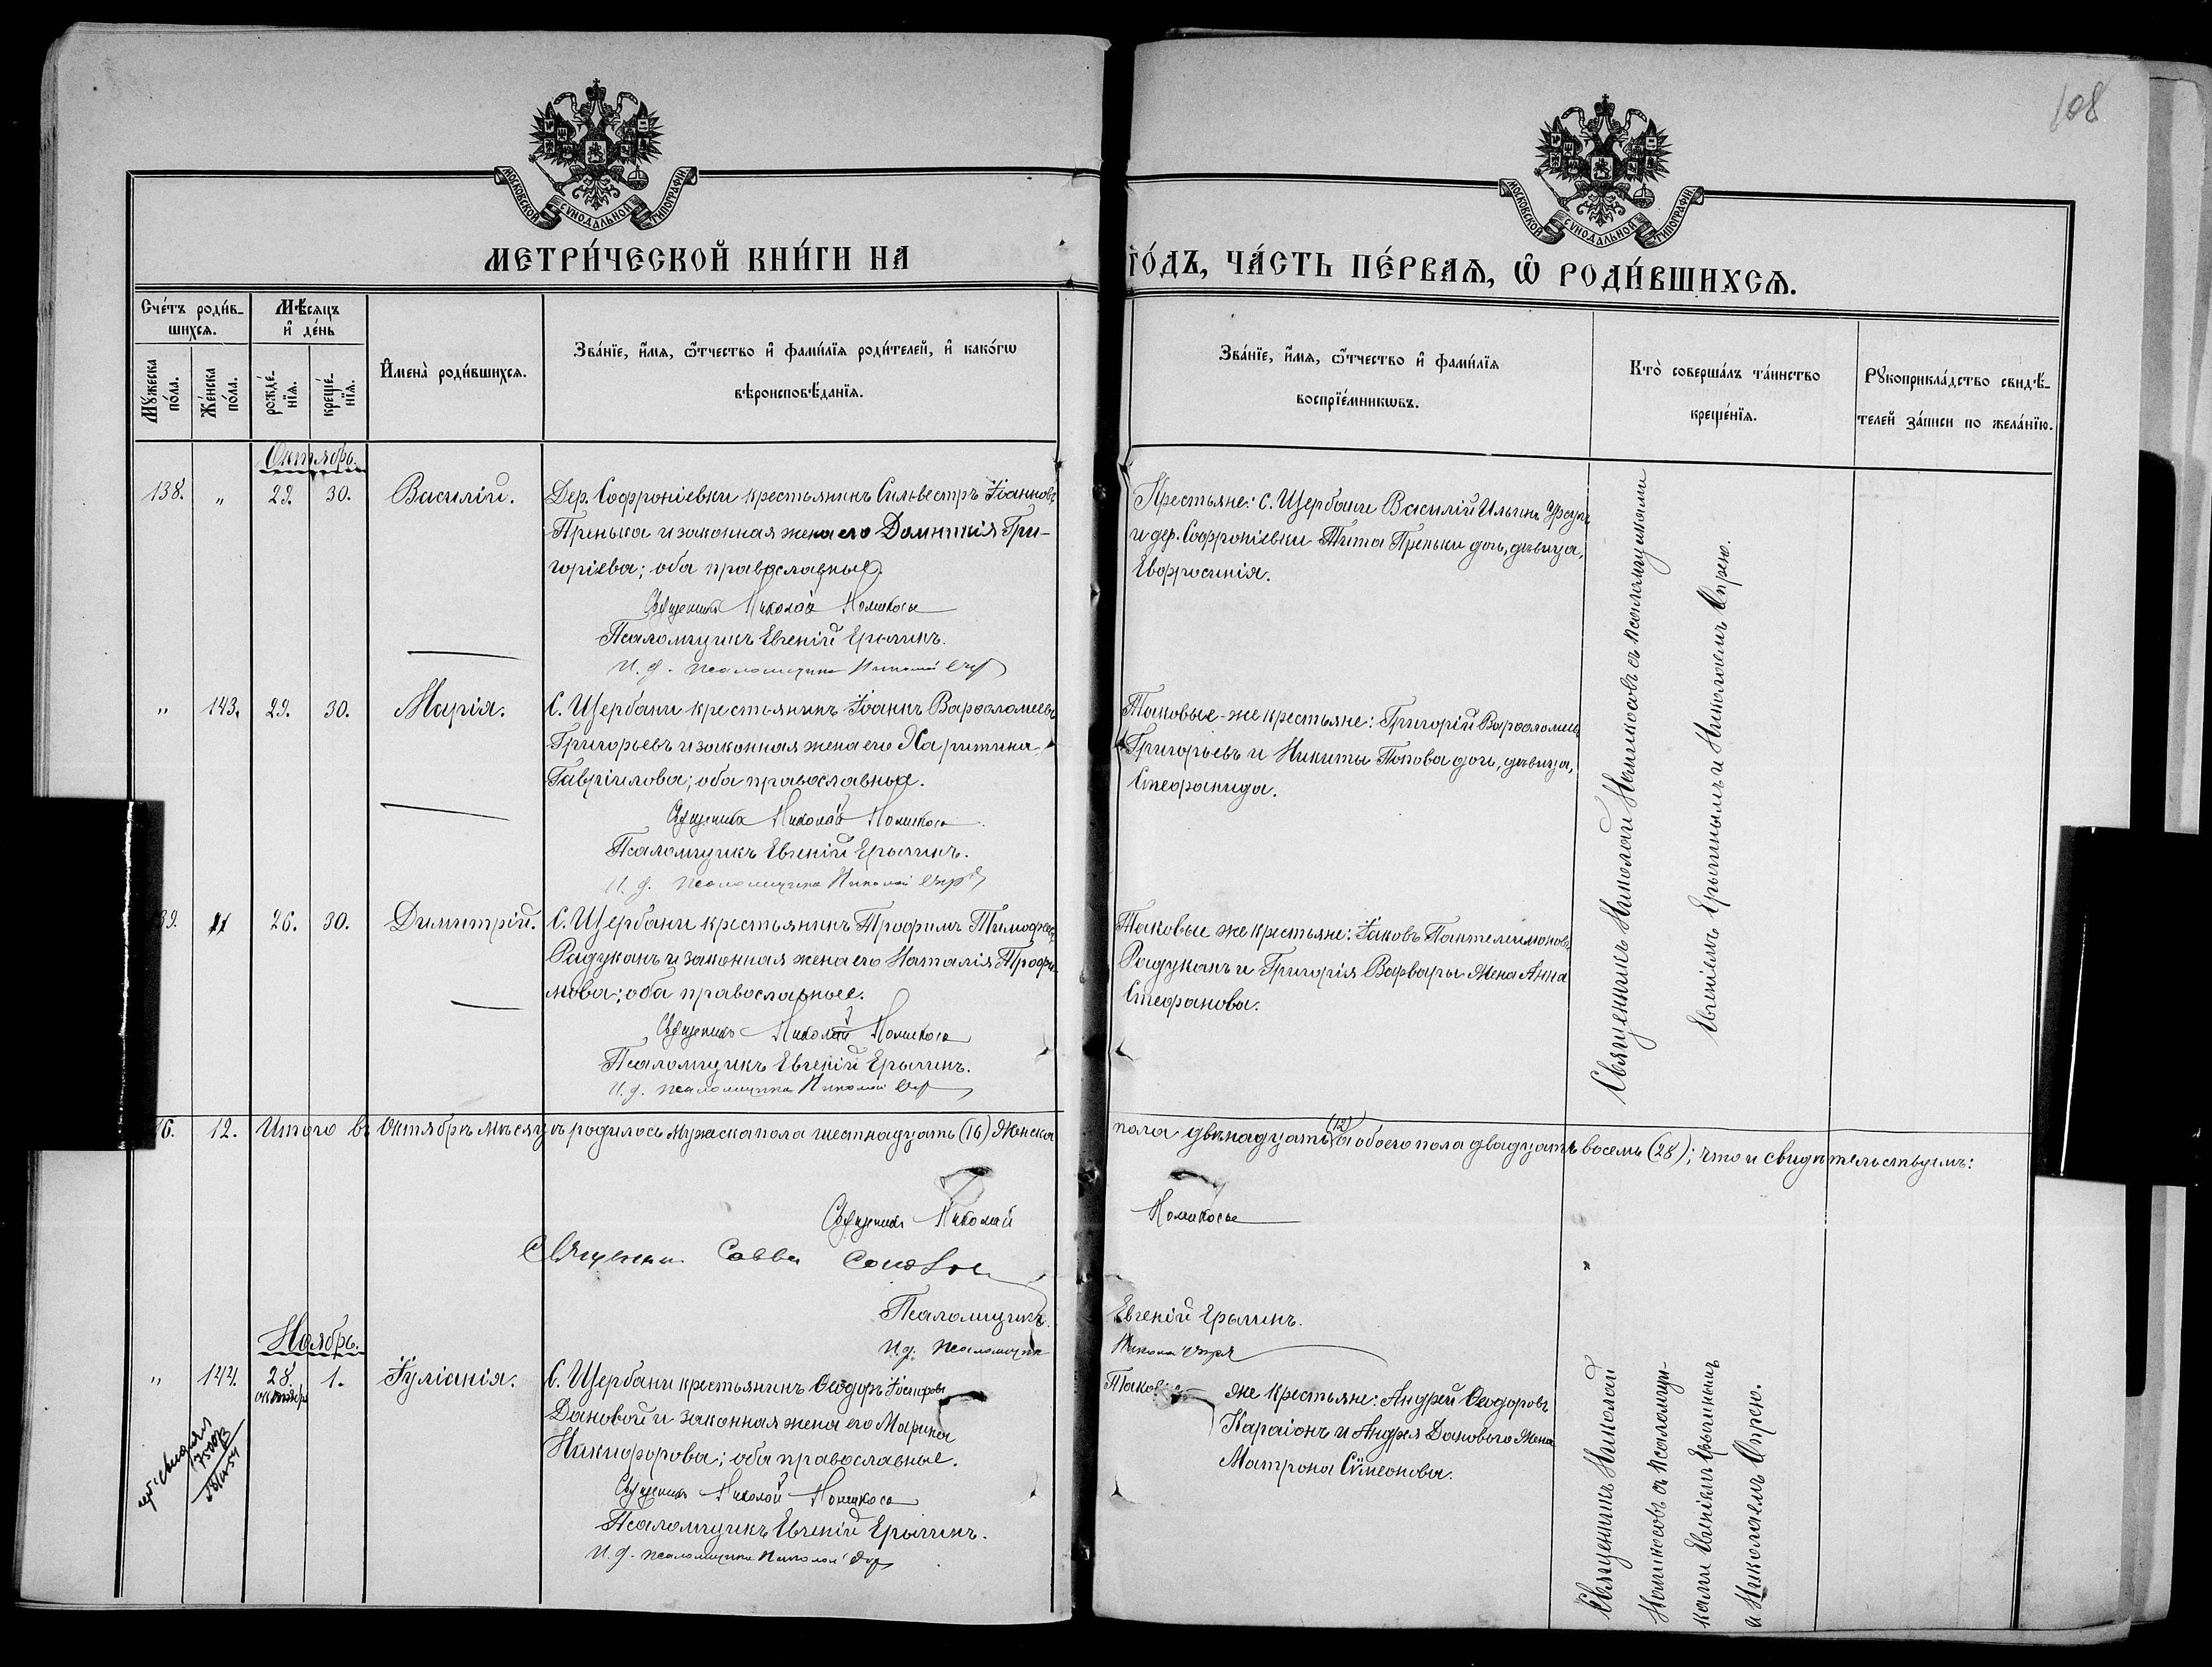 108
МОСКОВСКОЙ СѴНОДАЛЬНОЙ ТИПОГРАФІИ
МОСКОВСКОЙ СѴНОДАЛЬНОЙ ТИПОГРАФІИ
МЕТРИ́ЧЕСКОЙ КНИ́ГИ НА
ГО́ДЪ, ЧА́СТЬ ПЕ́РВАѦ, Ѡ҆ РОДИ́ВШИХСѦ.
Сче́тъ роди́в-
шихсѧ.
Мѣ́сяцъ
и҆ де́нь
Му́жеска по́ла.
Же́нска по́ла.
рожде́-
нїѧ.
креще́-
нїѧ.
И҆мена̀ роди́вшихсѧ.
Зва́нїе, и҆́мѧ, ѻ҆́тчество и҆ фами́лїѧ роди́телей, и҆ како́гѡ
вѣроисповѣ́данїѧ.
Зва́нїе, и҆́мѧ, ѻ҆́тчество и҆ фами́лїѧ
воспрїе́мникѡвъ.
Кто̀ соверша́лъ та́инство
креще́нїѧ.
Рꙋкоприкла́дство свидѣ́-
телей за́писи по жела́нїю.
Октябрь.
138. „ 29. 30. Василій.
Дер. Софроніевки крестьянинъ Сильвестръ Іоанновъ
Пренька и законная жена его Домникія Гри-
горіева; оба православные.
Священникъ Николай Номикосъ
Псаломщикъ Евгеній Ерыгинъ.
И. д. псаломщика Николай
Крестьяне: С. Щербани Василій Ильинъ
и дер. Софроніевки Тита Преньки дочь, дѣвица,
Евфросинія.
„ 143. 29. 30. Марія.
С. Щербани крестьянинъ Іоаннъ Варѳоломеевъ
Григорьевъ и законная жена его Харитина
Гавріилова; оба православные.
Священникъ Николай Номикосъ
Псаломщикъ Евгеній Ерыгинъ.
И. д. псаломщика Николай
Таковые-же крестьяне: Григорій Варѳоломеевъ
Григорьевъ и Никиты Попова дочь, дѣвица,
Стефанида.
39. „ 26. 30. Димитрій.
С. Щербани крестьянинъ Трофимъ Тимофеевъ
Радуканъ и законная жена его Наталія Трофи-
мова; оба православные.
Священникъ Николай Номикосъ
Псаломщикъ Евгеній Ерыгинъ.
И. д. псаломщика Николай
Таковые же крестьяне: Іаковъ Пантелимоновъ
Радуканъ и Григорія Варвары жена Анна
Стефанова.
Священникъ Николай Номикосъ съ псаломщиками
Евгеніемъ Ерыгинымъ и Николаемъ Опрею.
16. 12. Итого въ Октябрѣ мѣсяцѣ родилось мужеска пола шестнадцать (16) женска
пола двѣнадцать (12) а обоего пола двадцать восемь (28); что и свидѣтельствуемъ:
Священникъ Николай
Номикосъ
Священникъ Савва
Псаломщикъ
Евгеній Ерыгинъ.
И. д. псаломщика
Николай Опря
Ноябрь.
„ 144. 28. октября 1. Іуліанія.
С. Щербани крестьянинъ Ѳеодоръ
Дановой и законная жена его Марина
Никифорова; оба православные.
Священникъ Николай Номикосъ
Псаломщикъ Евгеній Ерыгинъ.
И. д. псаломщика Николай
Таковые же крестьяне: Андрей Ѳеодоровъ
Караіонъ и АндреяДанового жена
Матрона Сѵмеонова.
Священникъ Николай
Номикосовъ съ псаломщи-
ками Евгеніемъ Ерыгинымъ
и Николаемъ Опрею.